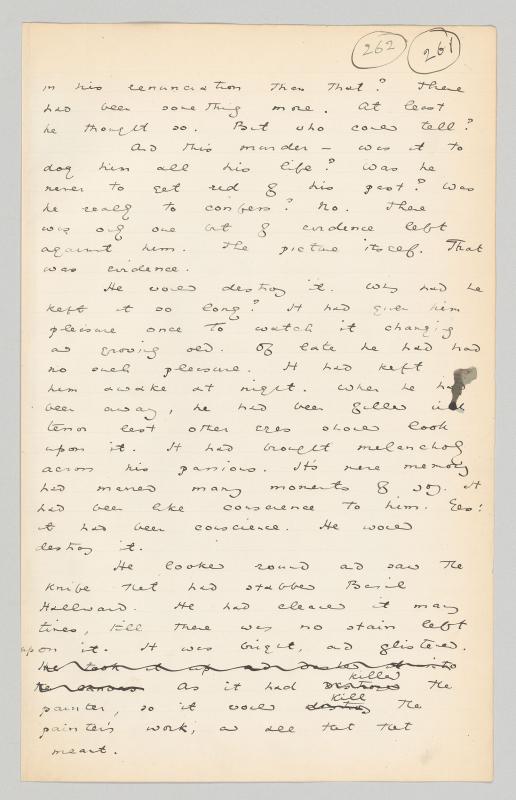 262 261
in his renunciation than that? There
had been something more. At least
he thought so. But who could tell?
And this murder – was it to
dog him all his life? Was he
never to get rid of his past? Was
he really to confess? No. There
was only one bit of evidence left
against him. The picture itself. That
was evidence.
He would destroy it. Why had he
kept it so long? It had given him
pleasure once to watch it changing
and growing old. Of late he had had
no such pleasure. It had kept
him awake at night. When he had
been away, he had been filled with
terror lest other eyes should look
upon it. It had brought melancholy
across his passions. Its mere memory
had marred many moments of joy. It
had been like conscience to him. Yes:
it had been conscience. He would
destroy it.
He looked round and saw the
knife that had stabbed Basil
Hallward. He had cleaned it many
times, till there was no stain left
upon it. It was bright, and glistened.
He took it up and dashed it into
the canvas As it had destroyed killed the
painter, so it would destroy kill the
painter's work, and all that that
meant.